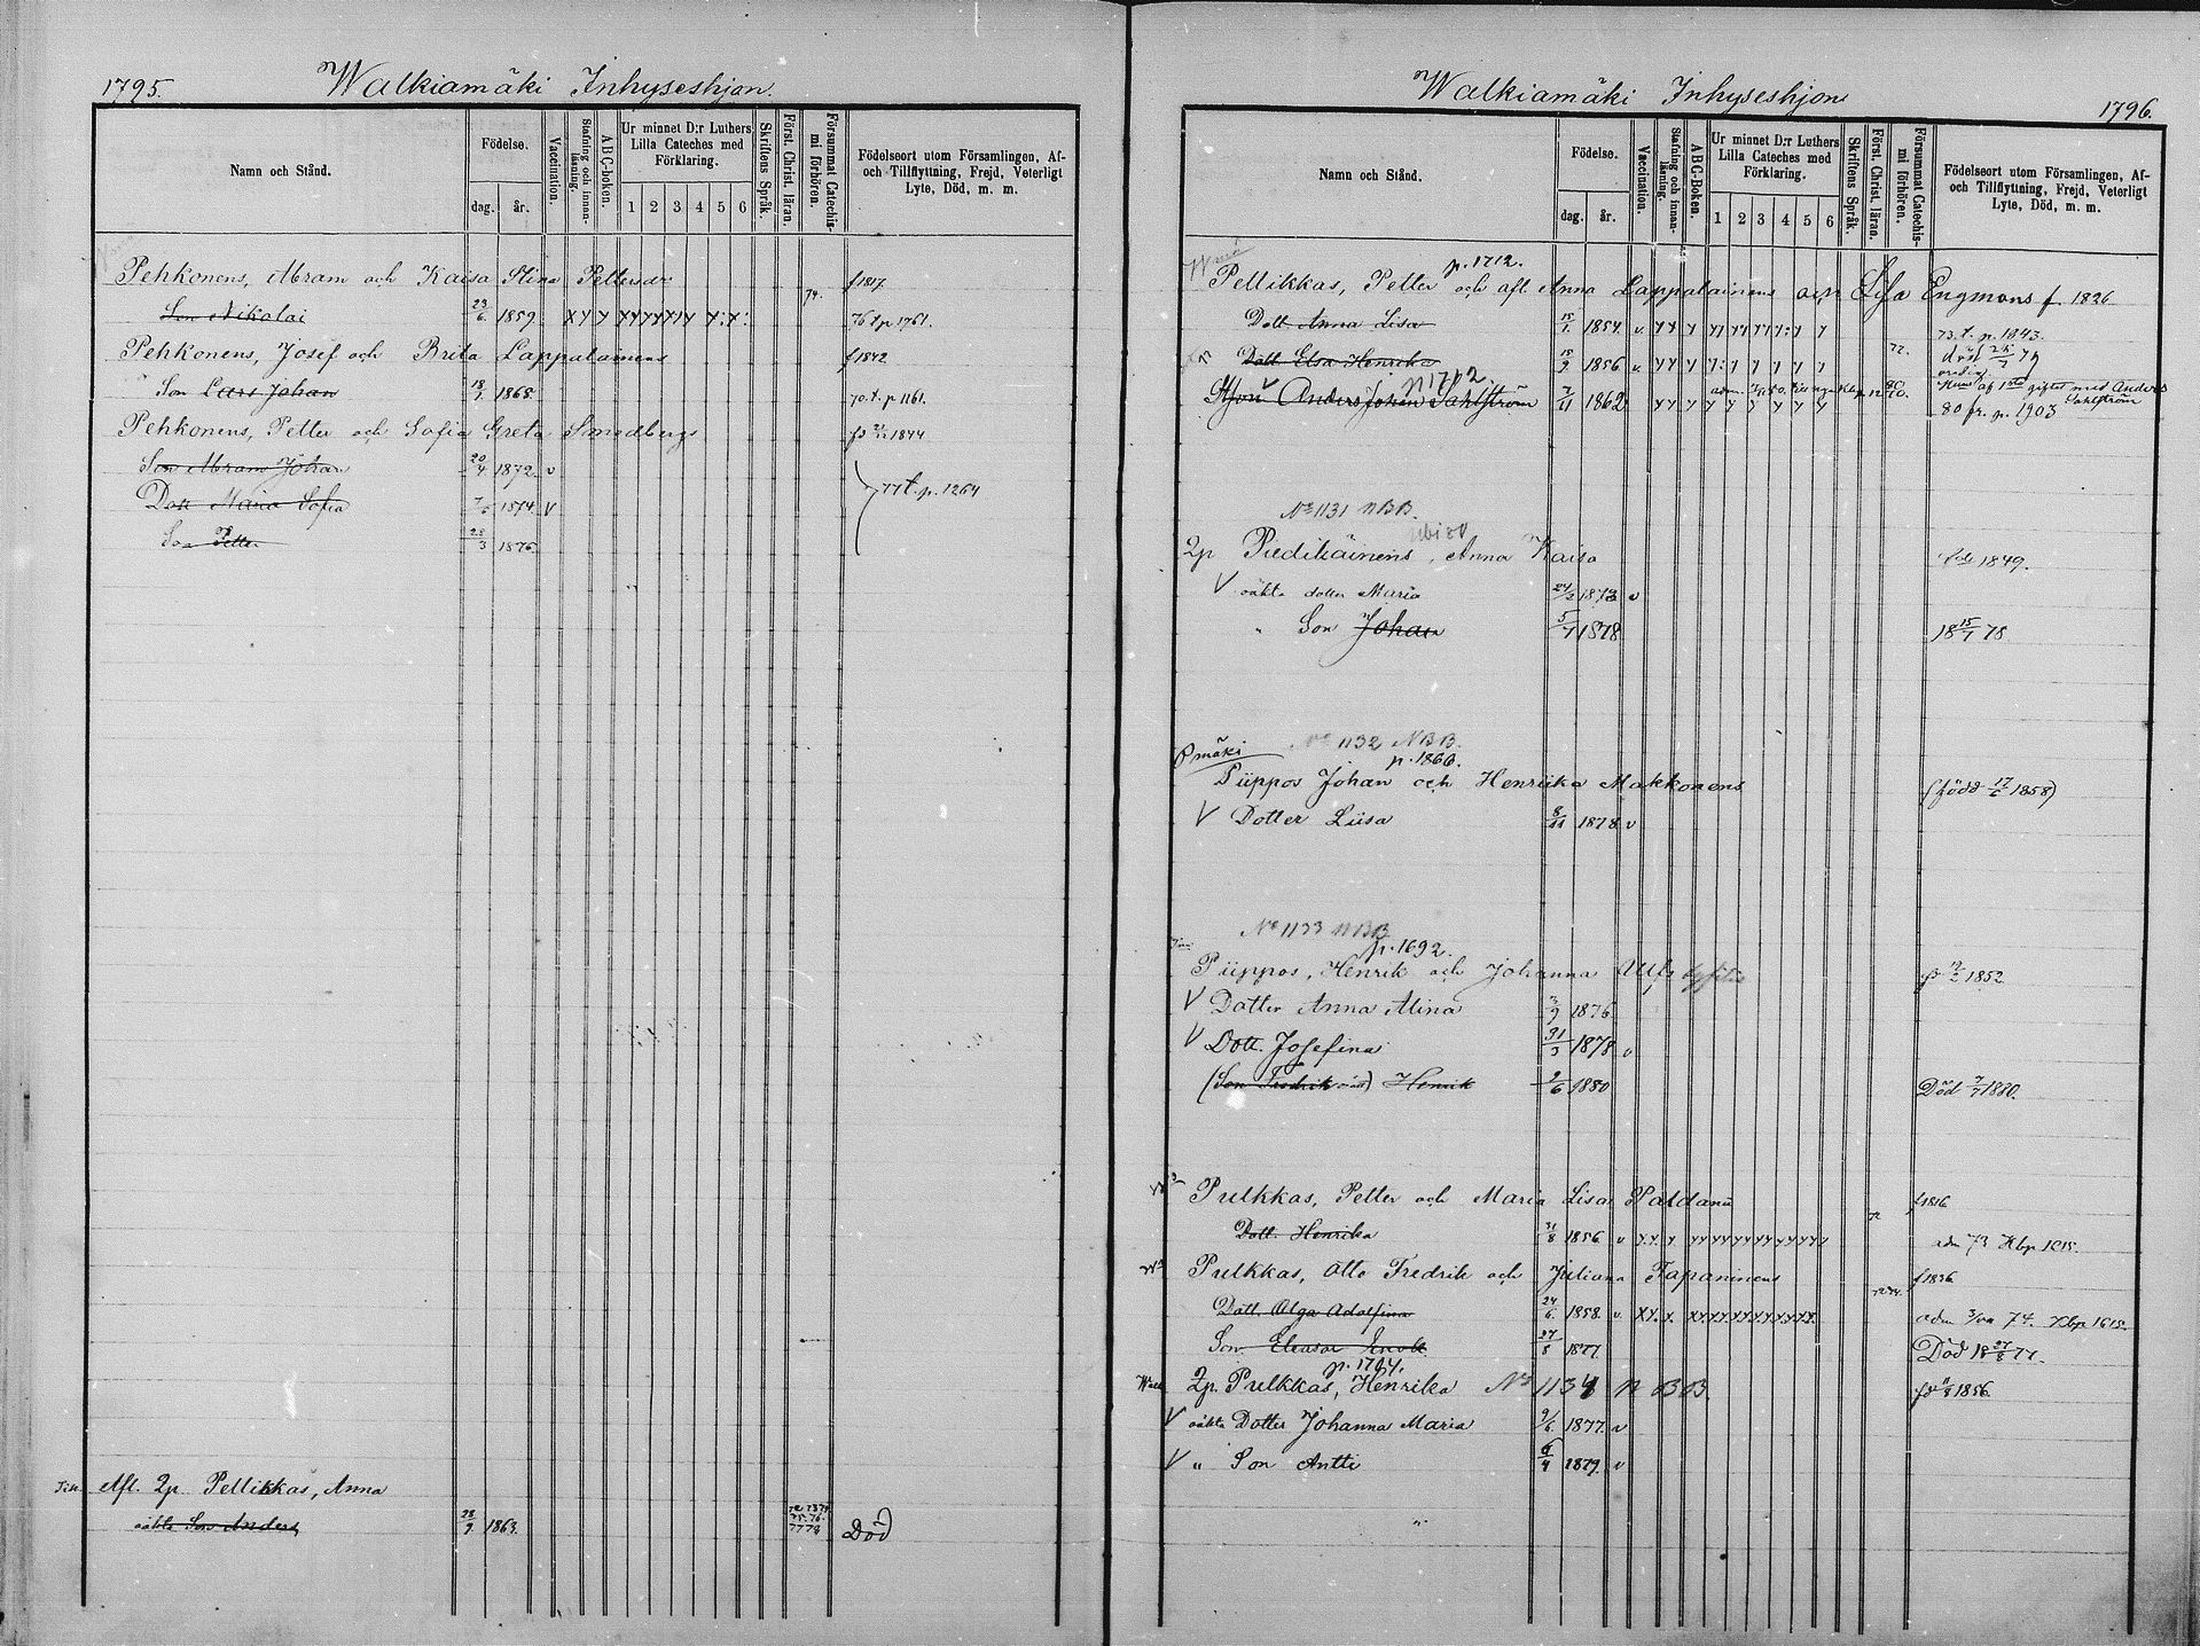 1795.
Walkiamäki Inhyseshjon.
Namn och Stånd.
Födelse.
dag.
år.
Vaccination.
Stafning och innanläsning.
ABC-boken.
Ur minnet D:r Luthers Lilla Cateches med Förklaring.
1 2 3 4 5 6
Skriftens Språk.
Först. Christ. läran.
Försummat Catechismi förhören.
Födelseort utom Församlingen, Af- och Tillflyttning, Frejd, Veterligt Lyte, Död, m. m.
Pehkonens, Abram och Kaisa Stina Pettersdr f 1817
Son Nikolai 23/6 1859. 74. 76 t p 1761.
Pehkonens, Josef och Brita Lappalainens f 1842
Son Lars Johan 18/1 1868. 70. t. p 1161.
Pehkonens, Petter och Sofia Greta Smedbergs 1844
Son Abram Johan 20/4 1872. v
Dott Maria Sofia 1874. v 77 t. p. 1264
Son Petter 28/3 1876.
Afl. 2p Pellikkas, Anna
oäkta Son Anders 28/9 1863. Död
Walkiamäki Inhyseshjon
1796.
Namn och Stånd.
Födelse.
dag.
år.
Vaccination.
Stafning och innanläsning.
ABC-Boken.
Ur minnet D:r Luthers Lilla Cateches med Förklaring.
1 2 3 4 5 6
Skriftens Språk.
Först. Christ. läran.
Försummat Catechismi förhören.
Födelseort utom Församlingen, Af- och Tillflyttning, Frejd, Veterligt Lyte, Död, m. m.
p. 1712.
Pellikkas, Petter och afl. Anna Lappalainens och Lisa Engmans f. 1826
Dott Anna Lisa 15/1 1854. v 73. t. p. 1843.
Dott Elsa Henrika 1856. v 77.
p 1712
Stjson Anders Johan Sahlström 7/11 1862 gift med Anders Sahlström
80 fr. p. 1903
No 1131 NBB.
2p Piedikäinens, Anna Kaisa 1849.
V oäkta dotter Maria 24/2 1873 v
" Son Johan 5/7 1878 18 15/7 78
Pmäki No 1132 NBB.
p. 1860.
Piippos Johan och Henriika Makkonens (född 17/6 1858)
V Dotter Liisa 8/11 1878 v
No 1133 NBB
p. 1692.
Piippos, Henrik och Johanna Ulfs 1852
V Dotter Anna Alina 3/9 1876.
V Dott. Josefina 31/3 1878 v
(Son Fredrik) Henrik 9/6 1880 Död 7/7 1880.
Pulkkas, Petter och Maria Lisa Paldani f 1816
Dott. Henrika 31/8 1856 v 72 adm 73 Kbp 1615.
Pulkkas, Otto Fredrik och Juliana Tapaninens f 1836
Dott. Olga Adolfina 24/6 1858. v. adm 74. Kbp 1615.
Son Eleasar Enok 27/8 1877. Död 18 27/8 77.
p. 1704.
2p. Pulkkas, Henrika No 1134 NBB. 1856
V oäkta Dotter Johanna Maria 9/6 1877. v
V " Son Antti 6/4 1879. v